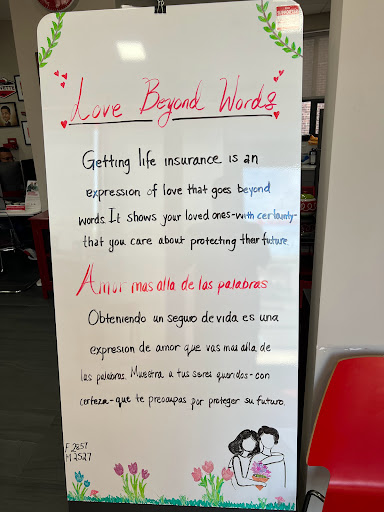 Love Beyond Words
Getting life insurance is an
expression of love that goes beyond
words. It shows your loved ones-with certainty-
that you care about protecting their future.
Amor mas alla de las palabras
Obteniendo un seguro de vida es una
expresion de amor que vas mas alla de
las palabras. Muestra a tus seres queridos-con
certeza-que te preocupas por proteger su futuro.
F 2857
M 2527